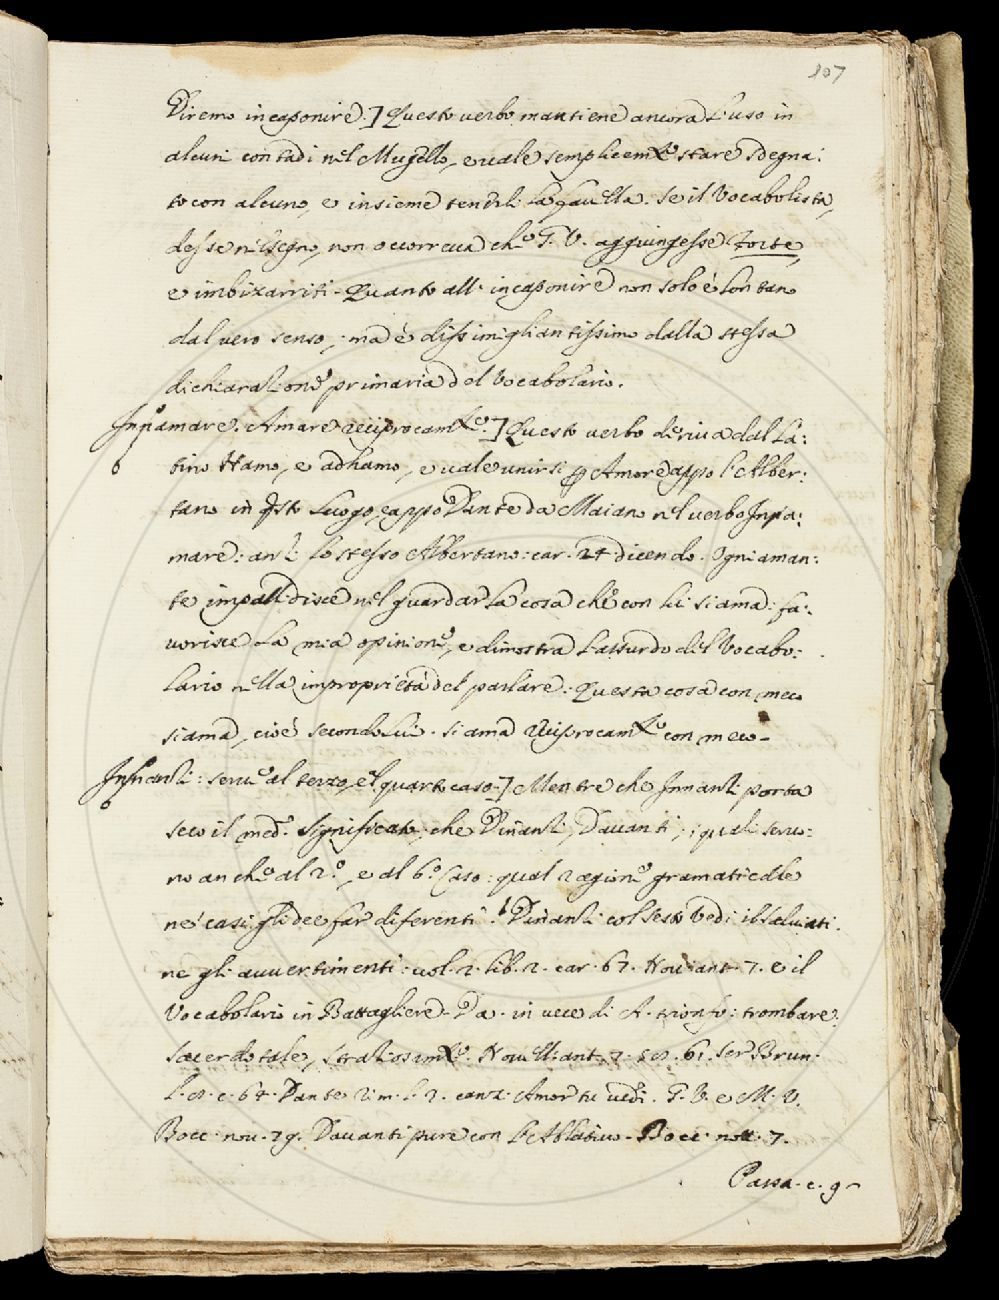 107
Diremo incaponire.] Questo verbo mantiene ancora l'uso in
alcuni contadi nel Mugello, e vale semplicemte stare sdegna:
to con alcuno, e insieme tendrli la favella. Se il Vocabolista,
desse nel segno, non occorreva che G. V. aggiungesse forte,
e imbizarriti. Quanto all' incaponire non solo è lontano
dal vero senso, ma è dissimigliantissimo dalla stessa
dichiaratione primaria del Vocabolario.
Innamare. Amare reciprocamte.] Questo verbo deriva dal La:
tino Hamo, e adhamo, e vale unirsi p Amore appo l'Alber:
tano in qsto luogo, e appo Dante da Maiano nel verbo Inna:
mare: anzi lo stesso Albertano: car. 24 dicendo. Ogni aman:
te impallidisce nel guardar la cosa che con lui si ama: fa:
vorisce la mia opinione, e dimostra l'assurdo del Vocabo:
lario nella improprietà del parlare: Questa cosa con meco
si ama, cioè secondo lui. si ama reciprocamte con meco.
Innanzi: serve al terzo, e'l quarto caso.] Mentre che Innanzi porta
seco il med.o significato, che Dinanzi, Davanti, i quali servo:
no anche al 2.o, e al 6.o Caso: qual ragione gramaticale
ne' casi gli dee far diferenti? Dinanzi col sesto vedi il Salviati
ne gli avvertimenti: vol. 2. lib. 2. car. 67. Nov. ant. 7. e il
Vocabolario in Battagliere. Da. in vece di A. trionfo: trombare.
sacerdotale, straziosamte. Novell. ant. 7. 61. Ser Brun.
c. 64. Dante rim. l. 2. canz. Amor tu vedi. G. V. e M. V.
Bocc. nov. 29. Davanti pure con l'Ablativo. Bocc. nov. 7.
Passa. c. 9.